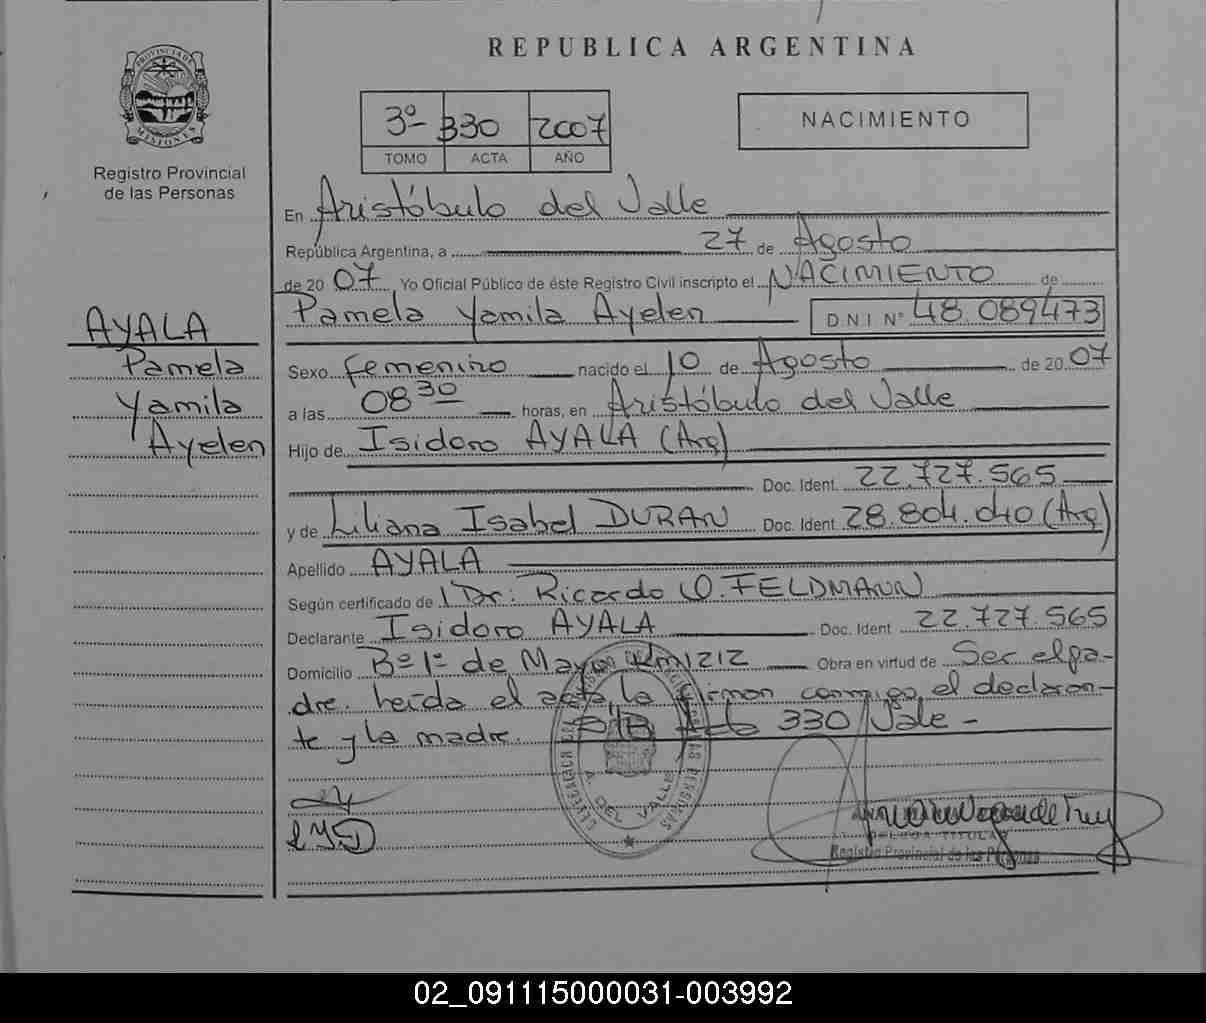 REPUBLICA ARGENTINA
PROVINCIA DE
MISIONES
Registro Provincial
de las Personas
3º 330 2007
TOMO ACTA AÑO
NACIMIENTO
En Aristóbulo del Valle
República Argentina, a 27 de Agosto
de 20 07 Yo Oficial Público de éste Registro Civil inscripto el NACIMIENTO de
Pamela Yamila Ayelen D.N.I Nº 48.089473
AYALA
Pamela
Yamila
Ayelen
Sexo femenino nacido el 10 de Agosto de 20 07
a las 08 30 horas, en Aristóbulo del Valle
Hijo de Isidoro AYALA (Arg)
Doc. Ident. 22.727.565
y de Liliana Isabel DURAN Doc. Ident 28.804.040 (Arg)
Apellido AYALA
Según certificado de Dr. Ricardo O. FELDMANN
Declarante Isidoro AYALA Doc. Ident 22.727.565
Domicilio Bº 1º de Mayo Km 1212 Obra en virtud de Ser el pa-
dre. Leída el acta, la firman conmigo el declaran-
te y la madre. Acta 330 Vale -
A. DEL VALLE
LYD
TITULAR
Registro Provincial de las Personas
02_091115000031-003992